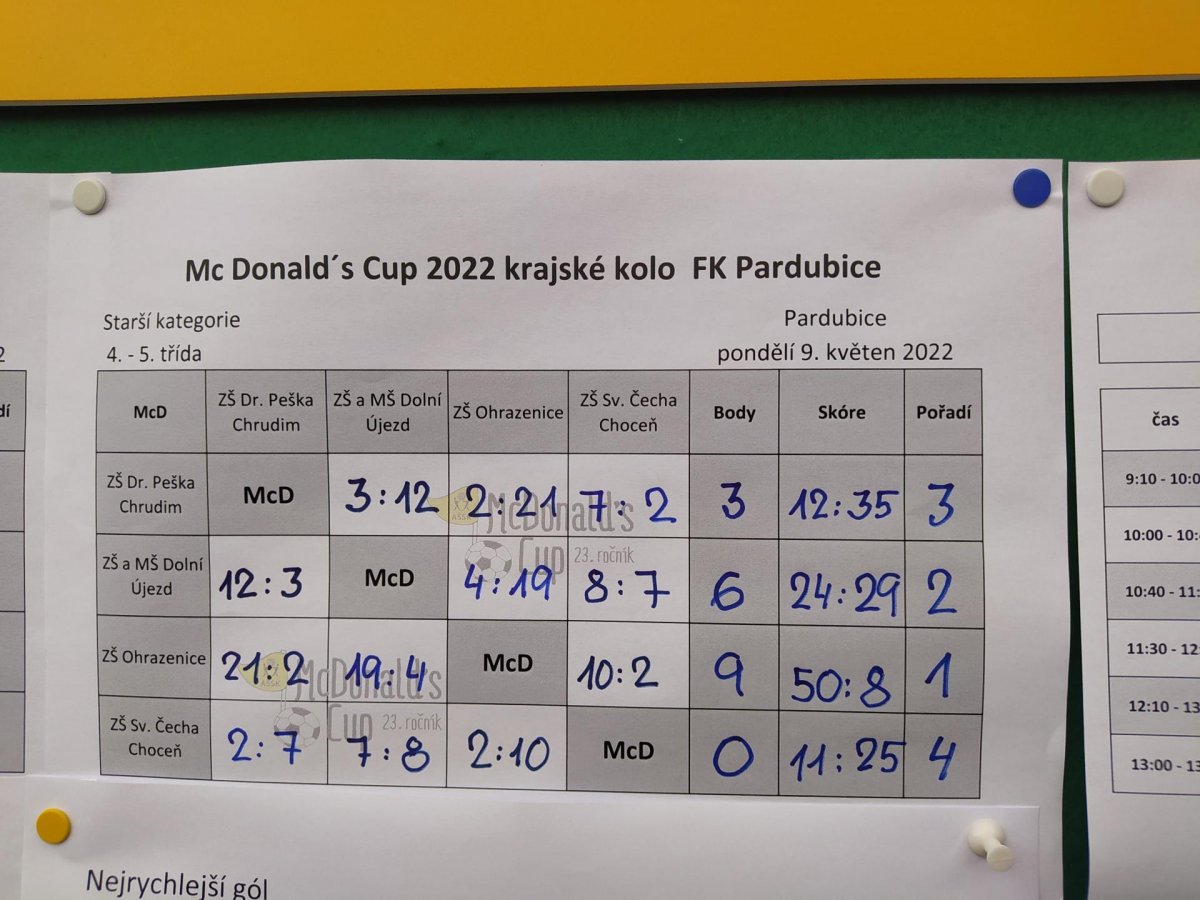 Mc Donald´s Cup 2022 krajské kolo FK Pardubice
Starší kategorie
Pardubice
4. - 5. třída
pondělí 9. květen 2022
McD
ZŠ Dr. Peška
Chrudim
ZŠ a MŠ Dolní
Újezd
ZŠ Ohrazenice
ZŠ Sv. Čecha
Choceň
Body
Skóre
Pořadí
ZŠ Dr. Peška
Chrudim
McD
3:12
2:21
7:2
3
12:35
3
ZŠ a MŠ Dolní
Újezd
12:3
McD
4:19
8:7
6
24:29
2
ZŠ Ohrazenice
21:2
19:4
McD
10:2
9
50:8
1
ZŠ Sv. Čecha
Choceň
2:7
7:8
2:10
McD
0
11:25
4
McDonald's
Cup 23. ročník
McDonald's
Cup 23. ročník
Nejrychlejší gól
čas
9:10 - 10:0
10:00 - 10:
10:40 - 11:
11:30 - 12:
12:10 - 13
13:00 - 13